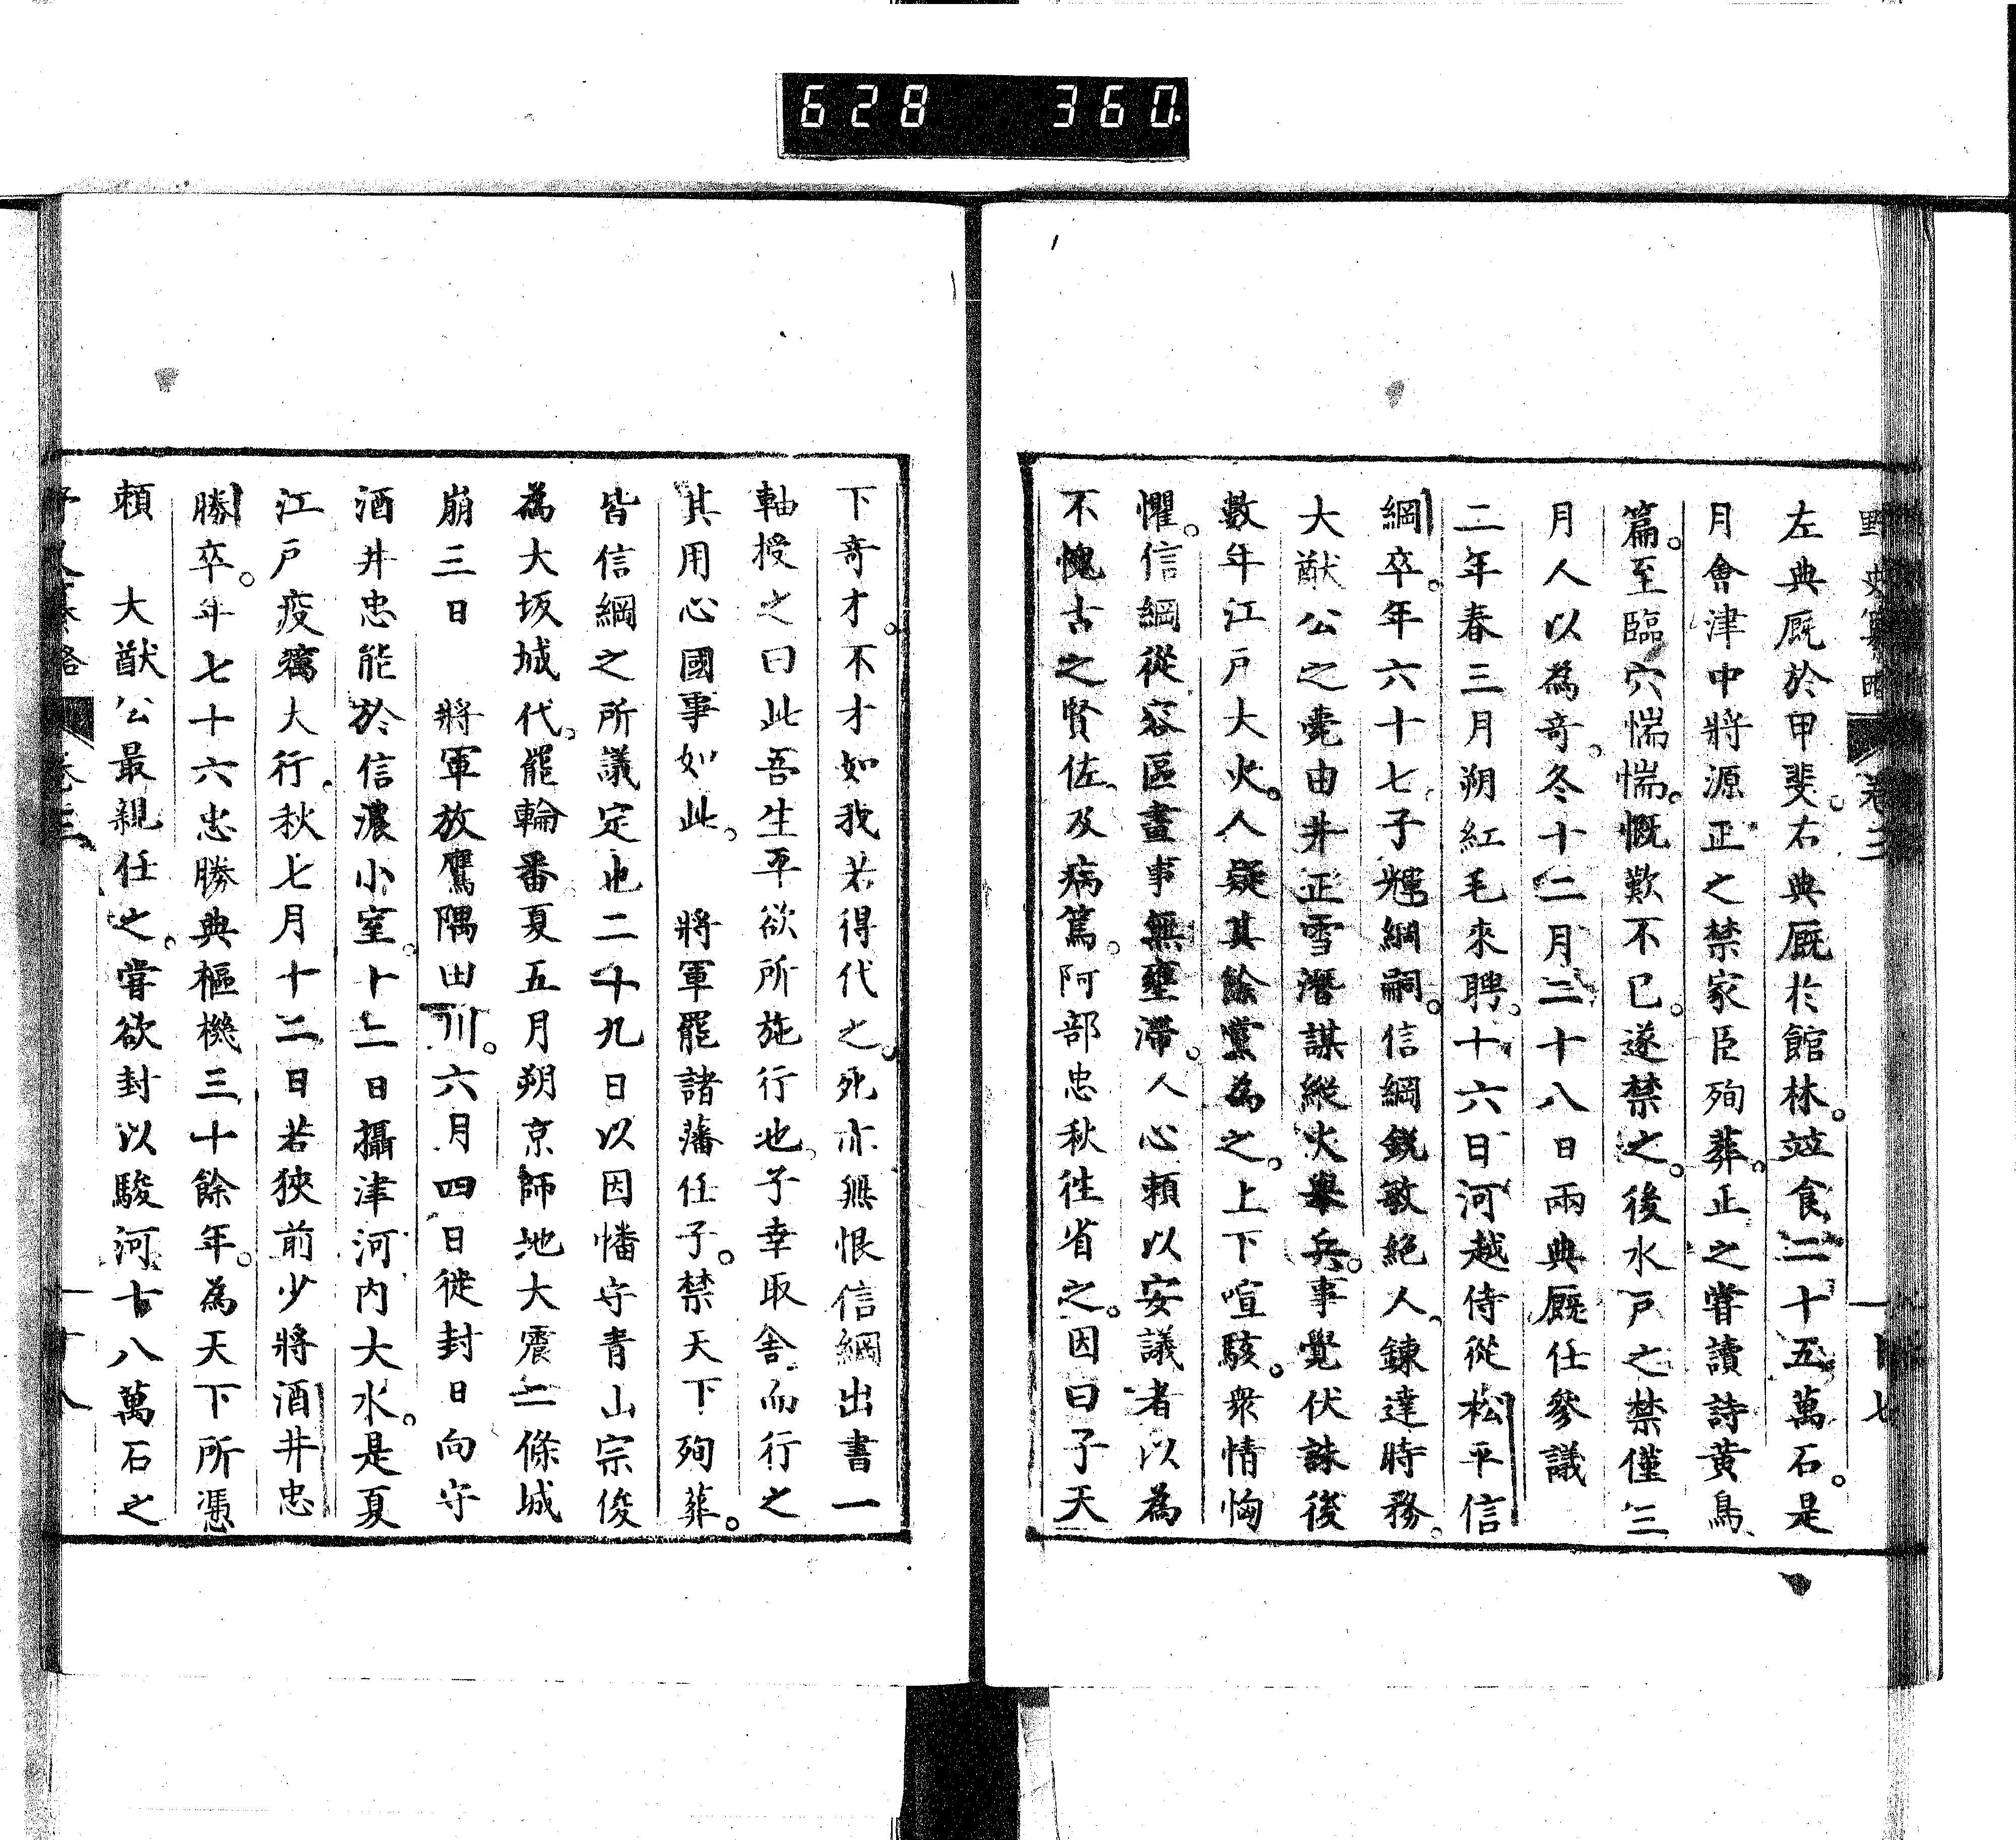 628 360.
左典厩於甲斐。右典厩於館林。竝食二十五萬石。是
月會津中將源正之禁家臣殉葬。正之嘗讀詩黄鳥
篇。至臨穴惴惴。慨歎不已。遂禁之。後水戸之禁僅三
月人以為奇。冬十二月二十八日兩典厩任參議
二年春三月朔紅毛來聘。十六日河越侍從松平信
綱卒。年六十七子輝綱嗣。信綱鋭敏絶人。錬達時務。
大猷公之薨由井正雪潛謀縱火擧兵。事覺伏誅後
數年江戸大火。人疑其餘黨為之。上下喧駭。衆情恟
懼。信綱從容區畫事無壅滯。人心頼以安議者以為
不愧古之賢佐。及病篤。阿部忠秋徃省之。因曰子天
下奇才。不才如我若得代之。死亦無恨信綱出書一
軸授之曰此吾生平欲所施行也。子幸取舍而行之
其用心國事如此。 將軍罷諸藩任子。禁天下殉葬。
皆信綱之所議定也二十九日以因幡守青山宗俊
為大坂城代。罷輪番夏五月朔京師地大震二條城
崩三日 將軍放鷹隅田川。六月四日徙封日向守
酒井忠能於信濃小室。十二日攝津河内大水。是夏
江戸疫癘大行。秋七月十二日若狹前少將酒井忠
勝卒。年七十六忠勝典樞機三十餘年。為天下所憑
頼 大猷公最親任之。嘗欲封以駿河七八萬石之